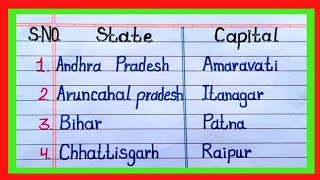 S.NO. State Capital
1. Andhra Pradesh Amaravati
2. Aruncahal pradesh Itanagar
3. Bihar Patna
4. Chhattisgarh Raipur